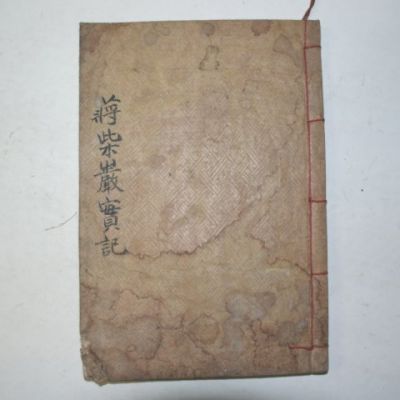 蔣柴巖實記